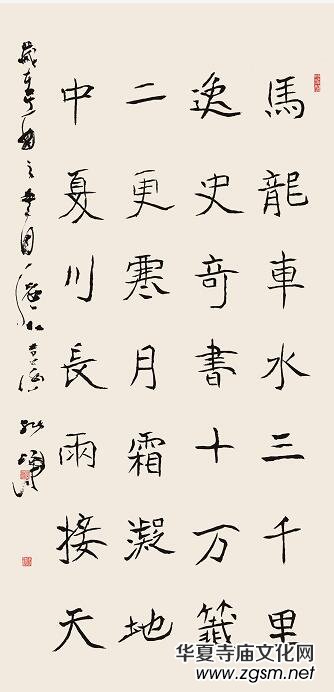 馬龍車水三千里
逸史奇書十万籤
二更寒月霜凝地
中夏川長雨接天
华夏寺庙文化网
www.zgsm.net